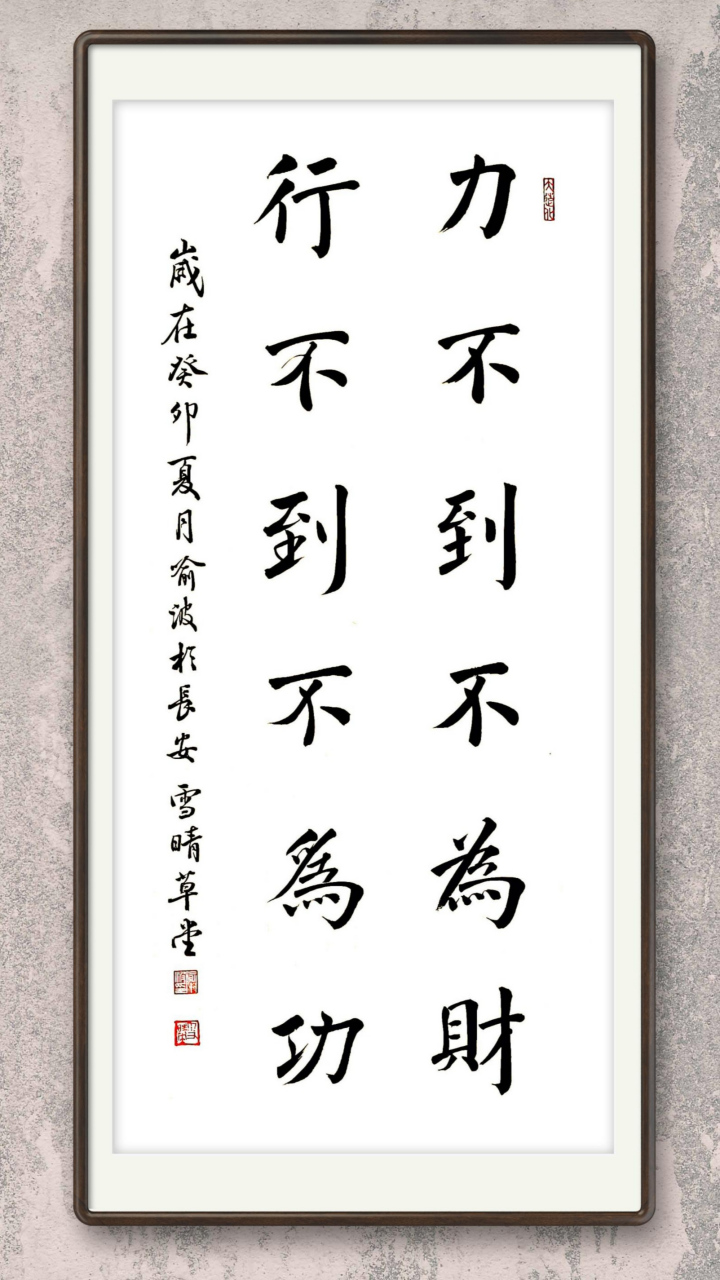 力不到不為財
行不到不爲功
歲在癸卯夏月俞波於長安雪晴草堂